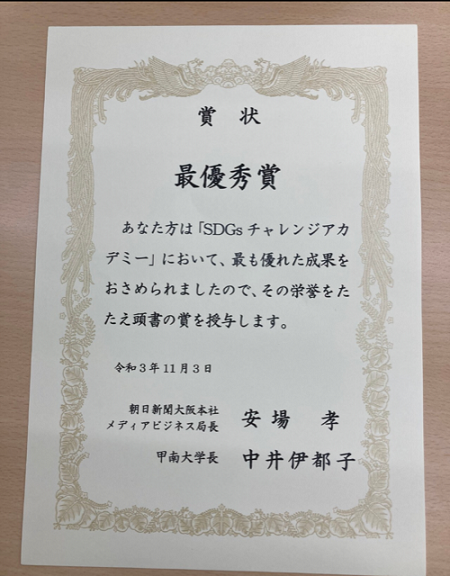 賞状
最優秀賞
あなた方は「SDGsチャレンジアカ
デミー」において、最も優れた成果を
おさめられましたので、その栄誉をた
たえ頭書の賞を授与します。
令和3年11月3日
朝日新聞大阪本社
メディアビジネス局長 安場 孝
甲南大学長 中井伊都子